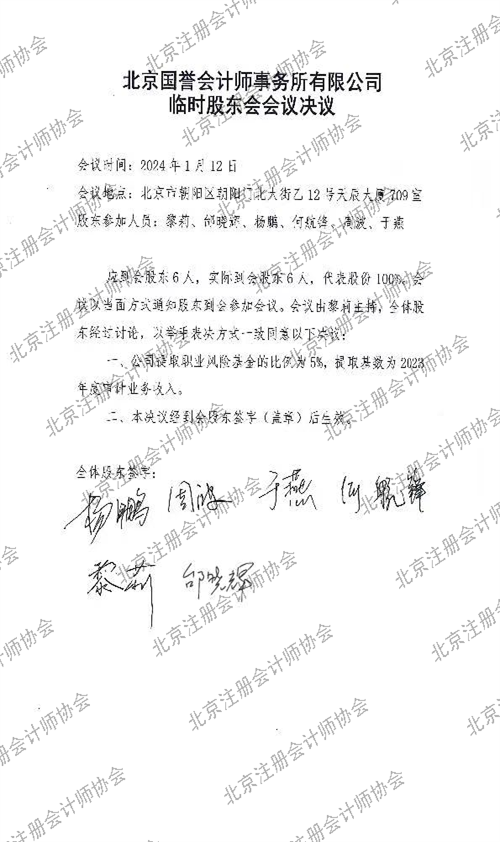 北京国誉会计师事务所有限公司
临时股东会会议决议
会议时间：2024年1月12日
会议地点：北京市朝阳区朝阳门北大街乙12号天辰大厦709室
股东参加人员：黎莉、邰晓辉、杨鹏、何毓锋、周波、于燕
应到会股东6人，实际到会股东6人，代表股份100%。会
议以当面方式通知股东到会参加会议。会议由黎莉主持，全体股
东经过讨论，以举手表决方式一致同意以下决议：
一、公司提取职业风险基金的比例为5%，提取基数为2023
年度审计业务收入。
二、本决议经到会股东签字（盖章）后生效。
全体股东签字：
杨鹏 周波 于燕 何毓锋
黎莉 邰晓辉
北京注册会计师协会